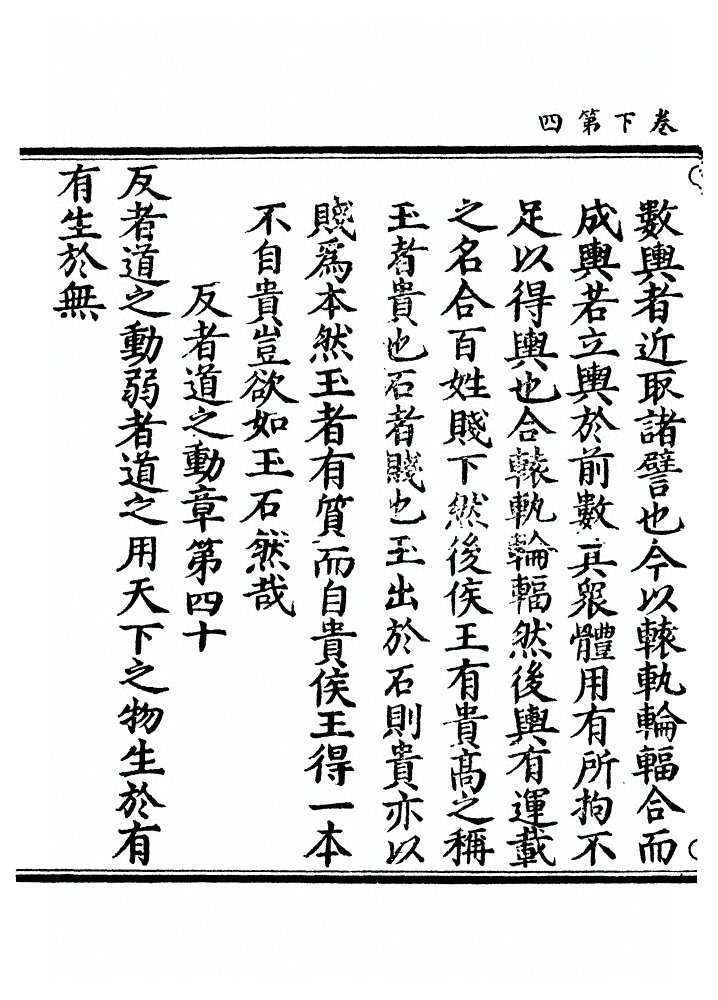 卷下第四
數輿者近取諸譬也今以轅軌輪輻合而
成輿若立輿於前數其衆體用有所拘不
足以得輿也合轅軌輪輻然後輿有運載
之名合百姓賤下然後侯王有貴高之稱
玉者貴也石者賤也玉出於石則貴亦以
賤爲本然玉者有質而自貴侯王得一本
不自貴豈欲如玉石然哉
反者道之動章第四十
反者道之動弱者道之用天下之物生於有
有生於無